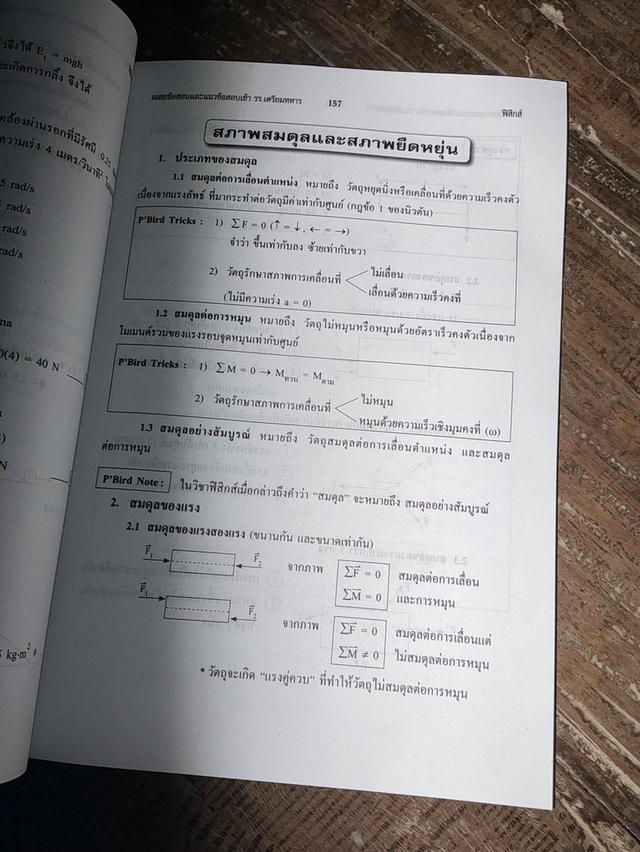 วจึงได้ E₁ = mgh
ะเกิดการกลิ้ง จึงได้
คล้องผ่านรอกที่มีรัศมี 0.25
ความเร่ง 4 เมตร/วินาที²
5 rad/s
rad/s
rad/s
rad/s
ma
0(4) = 40 N
N
kg·m² #
เฉลยข้อสอบและแนวข้อสอบเข้า รร.เตรียมทหาร 157 ฟิสิกส์
สภาพสมดุลและสภาพยืดหยุ่น
1. ประเภทของสมดุล
1.1 สมดุลต่อการเลื่อนตำแหน่ง หมายถึง วัตถุหยุดนิ่งหรือเคลื่อนที่ด้วยความเร็วคงตัว
เนื่องจากแรงลัพธ์ ที่มากระทำต่อวัตถุมีค่าเท่ากับศูนย์ (กฎข้อ 1 ของนิวตัน)
P'Bird Tricks : 1) ∑F = 0 (↑ = ↓, ← = →)
จำว่า ขึ้นเท่ากับลง ซ้ายเท่ากับขวา
2) วัตถุรักษาสภาพการเคลื่อนที่ ไม่เลื่อน
เลื่อนด้วยความเร็วคงที่
(ไม่มีความเร่ง a = 0)
1.2 สมดุลต่อการหมุน หมายถึง วัตถุไม่หมุนหรือหมุนด้วยอัตราเร็วคงตัวเนื่องจาก
โมเมนต์รวมของแรงรอบจุดหมุนเท่ากับศูนย์
P'Bird Tricks : 1) ∑M = 0 → Mทวน = Mตาม
2) วัตถุรักษาสภาพการเคลื่อนที่ ไม่หมุน
หมุนด้วยความเร็วเชิงมุมคงที่ (ω)
1.3 สมดุลอย่างสัมบูรณ์ หมายถึง วัตถุสมดุลต่อการเลื่อนตำแหน่ง และสมดุล
ต่อการหมุน
P'Bird Note : ในวิชาฟิสิกส์เมื่อกล่าวถึงคำว่า "สมดุล" จะหมายถึง สมดุลอย่างสัมบูรณ์
2. สมดุลของแรง
2.1 สมดุลของแรงสองแรง (ขนานกัน และขนาดเท่ากัน)
F⃗₁ F⃗₂ จากภาพ ∑F⃗ = 0 สมดุลต่อการเลื่อน
∑M⃗ = 0 และการหมุน
F⃗₁ F⃗₂ จากภาพ ∑F⃗ = 0 สมดุลต่อการเลื่อนแต่
∑M⃗ ≠ 0 ไม่สมดุลต่อการหมุน
* วัตถุจะเกิด "แรงคู่ควบ" ที่ทำให้วัตถุไม่สมดุลต่อการหมุน